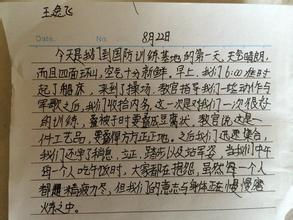 王逸飞
Date.
8月22日
今天是我们到国防训练基地的第一天,天气晴朗,
而且四面环山,空气十分新鲜。早上,我们6:00准时
起了床,来到了操场,教官指导我们一些动作与
军歌之后,我们收拾内务,这一次是对我们一次很好
的训练,叠被子时要叠成豆腐状,教官说这是一
件工艺品,要叠得方方正正地。之后我们迅速集合,
我们还学了稍息,立正,踏步以及站军姿。当我们中午
每一个人吃午饭时,大家都在抱怨,虽然每一个人
都精疲力尽,但我们的意志与身体正在慢慢磨
炼之中。